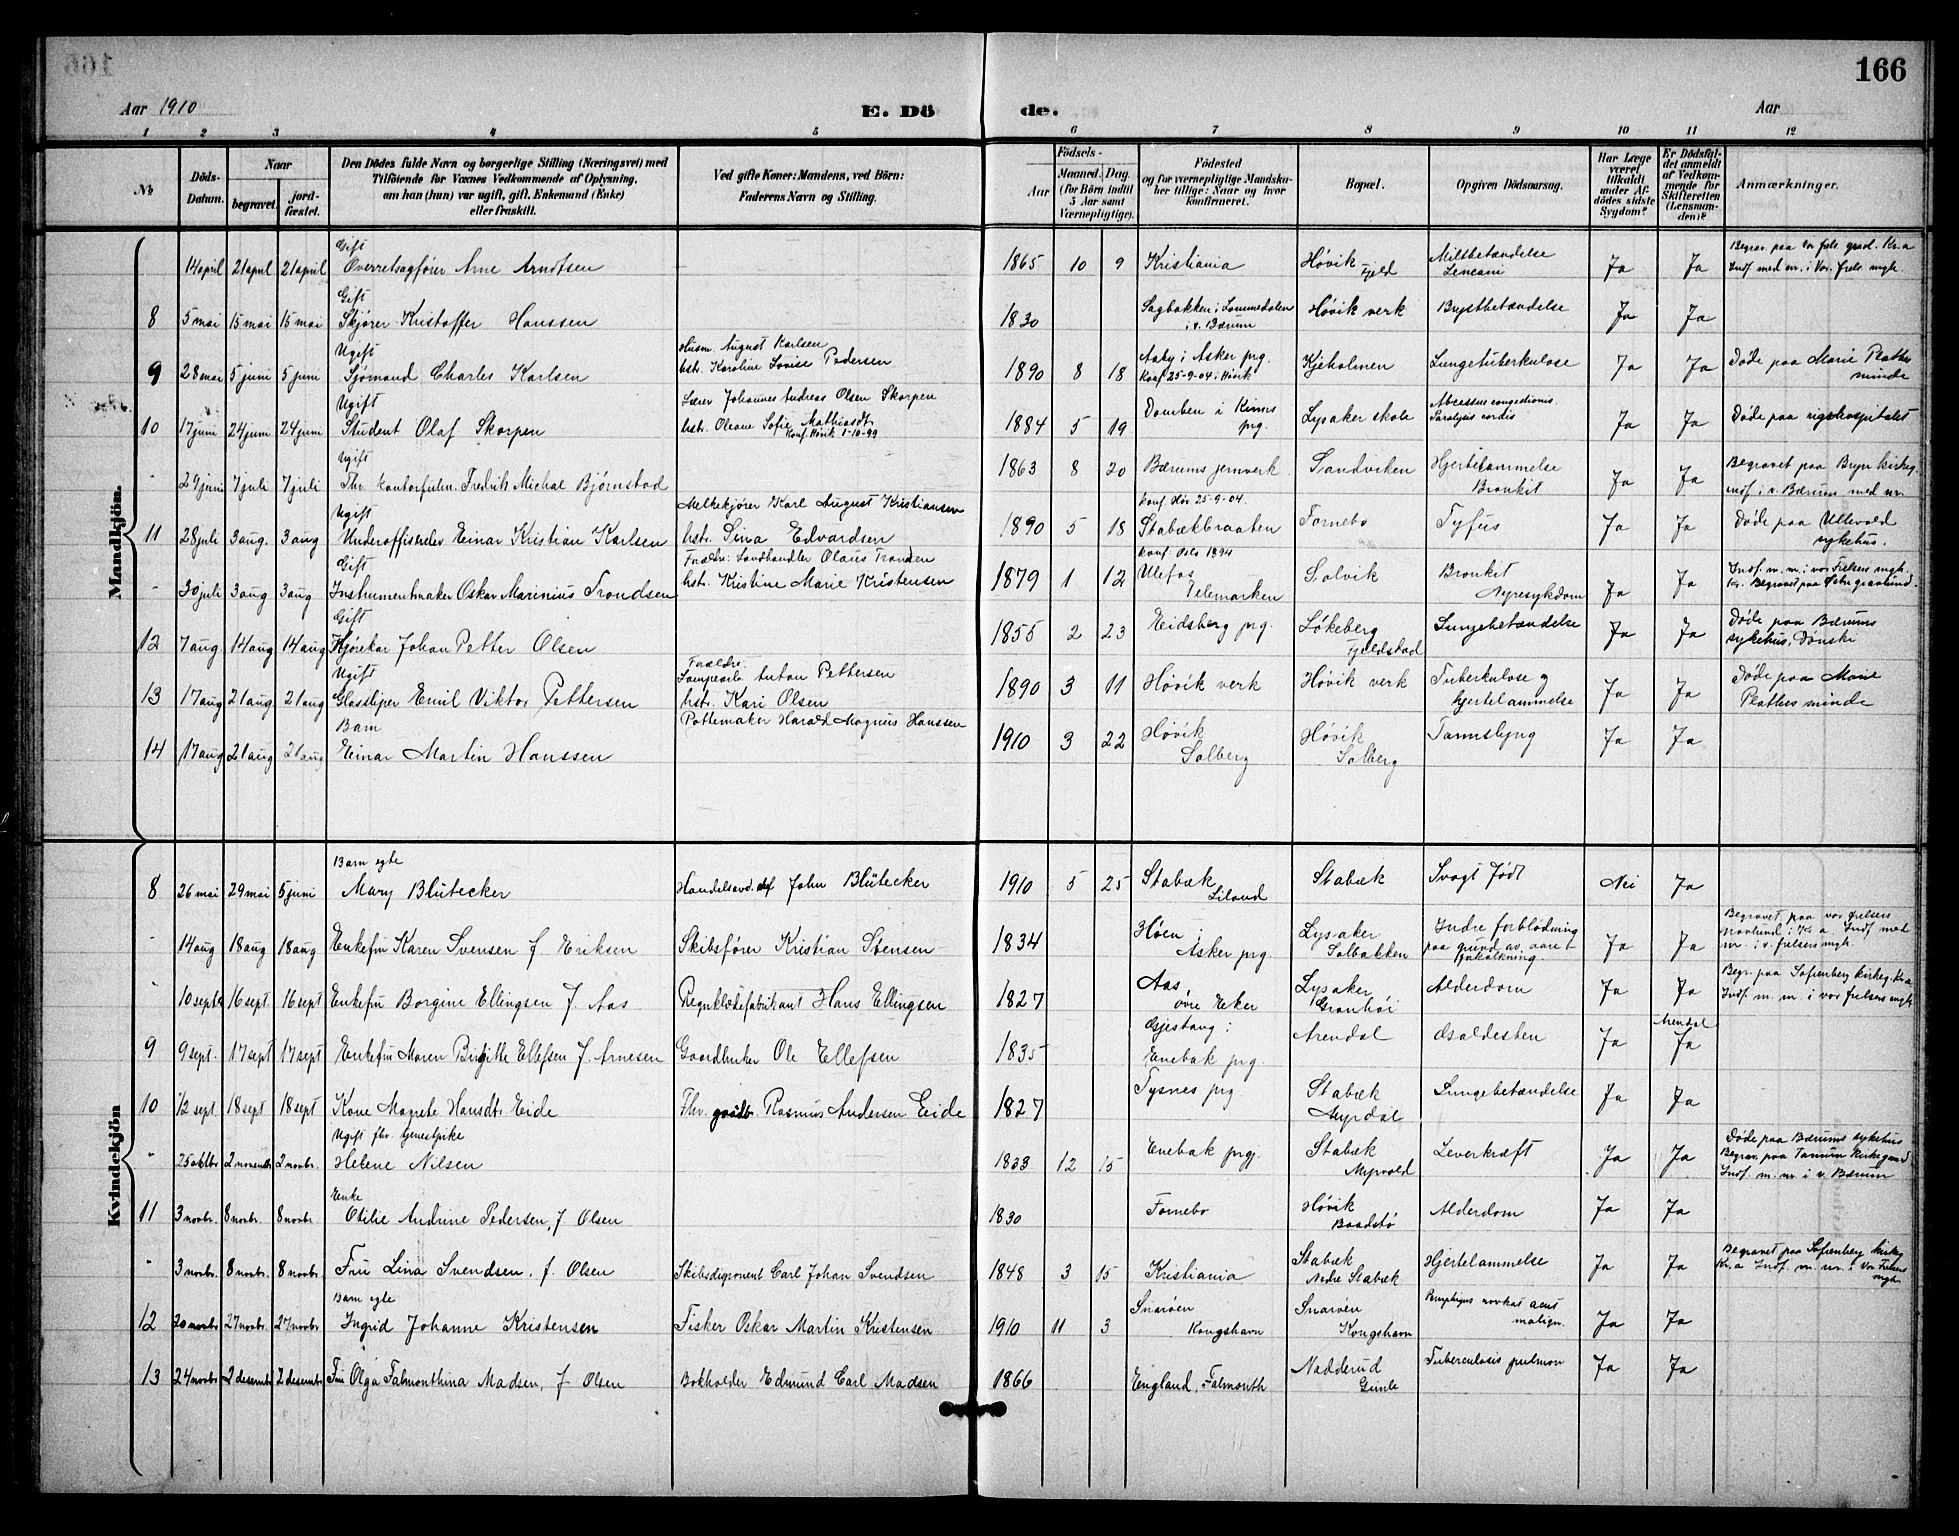 166
Aar 1910
E. Dö
de.
Aar
1 2 3 4 5 6 7 8 9 10 11 12
№
Döds-
Datum.
Naar
begravet.
jord-
fæstet.
Den Dödes fulde Navn og borgerlige Stilling (Næringsvei) med
Tilföiende for Voxnes Vedkommende af Oplysning,
om han (hun) var ugift, gift, Enkemand (Enke)
eller fraskilt.
Ved gifte Koner: Mandens, ved Börn:
Faderens Navn og Stilling.
Aar
Födsels-
Maaned. Dag.
(for Börn indtil
5 Aar samt
Værnepligtige).
Födested
og for værnepligtige Mandska-
ber tillige: Naar og hvor
konfirmeret.
Bopæl.
Opgiven Dödsaarsag.
Har Læge
været
tilkaldt
under Af-
dödes sidste
Sygdom?
Er Dödsfal-
det anmeldt
af Vedkom-
mende for
Skifteretten
(Lensman-
den)?
Anmærkninger.
Mandkjön.
Gift
14 april 21 april 21 april Overretsagfører Arne Arndtsen 1865 10 9 Kristiania Høvik Fjeld Miltbetændelse Ja Ja
Begrav. paa vor frels grad. Kr.a
Indf med nr. i Vor frels. mgh.
Gift
8 5 mai 15 mai 15 mai Skjører Kristoffer Hanssen 1830 Sagbakken i Lommedalen Høvik verk Brystbetændelse Ja Ja
i v. Bærum
Ugift
Husm. August Karlsen
9 28 mai 5 juni 5 juni Sjømand Charles Karlsen hstr. Karoline Lovise Pedersen 1890 8 18 Aaby i Asker prg. Kjeholmen Lungetuberkulose Ja Ja Døde paa Marie Plathes
Konf 25-9-04 i Høvik
minde
Ugift
Lærer Johannes Andreas Olsen Skorpen
10 17 juni 24 juni 24 juni Student Olaf Skorpen hstr. Oleane Sofie Mathiasdtr 1884 5 19 Domben i Kinns prg. Lysaker skole Abcessus congestionis. Paralysis cordis Ja Ja Døde paa rigshospitalet
Konf. Høvik 1-10-99
Ugift
" 29 juni 7 juli 7 juli Fhv. kontorfuldm. Fredrik Michal Bjørnstad 1863 8 20 Bærums jernverk Sandviken Hjertelammelse Bronkit Ja Ja
Begravet paa Bryn kirkeg.
indf. i v. Bærum med nr.
Ugift
Melkekjører Karl August Kristiansen
konf. Høv. 25-9-04.
11 28 juli 3 aug. 3 aug Underoffiserelev Einar Kristian Karlsen hstr. Lina Edvardsen 1890 5 18 Stabækbraaten Fornebo Tyfus Ja Ja Døde paa Ullevold
sykehus.
Gift
Forældre: Landhandler Olaus Tronsen
konf Oslo 1894
" 30 juli 3 aug 3 aug Instrumentmaker Oskar Marinius Trondsen hstr. Kristine Marie Kristensen 1879 1 12 Ulefos Telemarken Solvik Bronkit Nyresykdom Ja Ja
Indf. m. nr. i vor Frelsers mgh.
Kr. Begravet paa Østre gravlund.
Gift
12 7 aug 14 aug 14 aug Kjørekar Johan Petter Olsen 1855 2 23 Eidsberg prg. Løkeberg Fjeldstad Lungebetændelse Ja Ja
Døde paa Bærums
sykehus, Dønski
Ugift
Forældre:
Anton Pettersen
13 17 aug 21 aug 21 aug Glassliper Emil Viktor Pettersen hstr. Kari Olsen 1890 3 11 Høvik verk Høvik verk Tuberkulose og hjertelammelse Ja Ja
Døde paa Marie
Plathes minde
Barn
Pottemaker Harald Magnus Hanssen
14 17 aug 21 aug 21 aug Einar Martin Hanssen 1910 3 22 Høvik Solberg Høvik Solberg Tarmslyng Ja Ja
Kvindekjön
Barn egte
8 26 mai 29 mai 5 juni Mary Blütecker Handelsavd. chef John Blütecker 1910 5 25 Stabæk Liland Stabæk Svagt født Nei Ja
" 14 aug 18 aug 18 aug Enkefru Karen Svensen f Eriksen Skibsfører Kristian Stensen 1834 Høen i Asker prg. Lysaker Solbakken Indre forblødning paa grund av aare forkalkning. Ja Ja
Begravet paa vor frelsers
Gravlund i Kr.a Indf med
nr. i v. frelsers mgh.
" 10 septbr 16 sept. 16 sept Enkefru Borgine Ellingsen f. Aas Regnklædefabrikant Hans Ellingsen 1827 Aas, øvre Eker Lysaker Granhøi Alderdom Ja Ja
Begr. paa Sofienberg kirkeg. Kr.a
Indf. m. nr. i vor frelsers mgh.
9 9 sept. 17 sept 17 sept Enkefru Maren Birgitte Ellefsen f. Arnesen Gaardbruker Ole Ellefsen 1835 Gjestang i Enebak prg. Arendal Galdesten Ja Arendal Ja
10 12 sept. 18 sept 18 sept Kone Magrete Hansdtr Eide Fhv. gaardb. Rasmus Andersen Eide 1827 Tysnes prg Stabæk Myrdal Lungebetændelse Ja Ja
Ugift fhv. tjenestpike
" 25 oktbr 2 novembr 2 novbr. Helene Nilsen 1833 12 15 Enebak prgj. Stabæk Myrvold Leverkræft Ja Ja
Døde paa Bærums sykehus
Begrav. paa Tanum kirkegaard
Indf. m. nr i v. Bærum
Enke
11 3 novbr. 8 novbr. 8 novbr. Otilie Andrine Pedersen, f Olsen 1830 Fornebo Høvik Baadstø Alderdom Ja Ja
" 3 novbr. 8 novbr. 8 novbr. Fru Lina Svendsen. f. Olsen Skibsdisponent Carl Johan Svendsen 1848 3 15 Kristiania Stabæk Nedre Stabæk Hjertelammelse Ja Ja
Begravet paa Sofienberg kirkeg
Kr.a Indf. m. nr. i Vor Frelsers
mgh
Barn egte
12 20 novbr. 27 novbr 27 novbr Ingrid Johanne Kristensen Fisker Oskar Martin Kristensen 1910 11 3 Snarøen Kongshavn Snarøen Kongshavn malign. Ja Ja
13 24 novbr. 2 desembr 2 desembr Fru Olga Falmonthina Madsen, f Olsen Bokholder Edmund Carl Madsen 1866 England, Falmouth Nadderud Tuberculosis pulmon Ja Ja